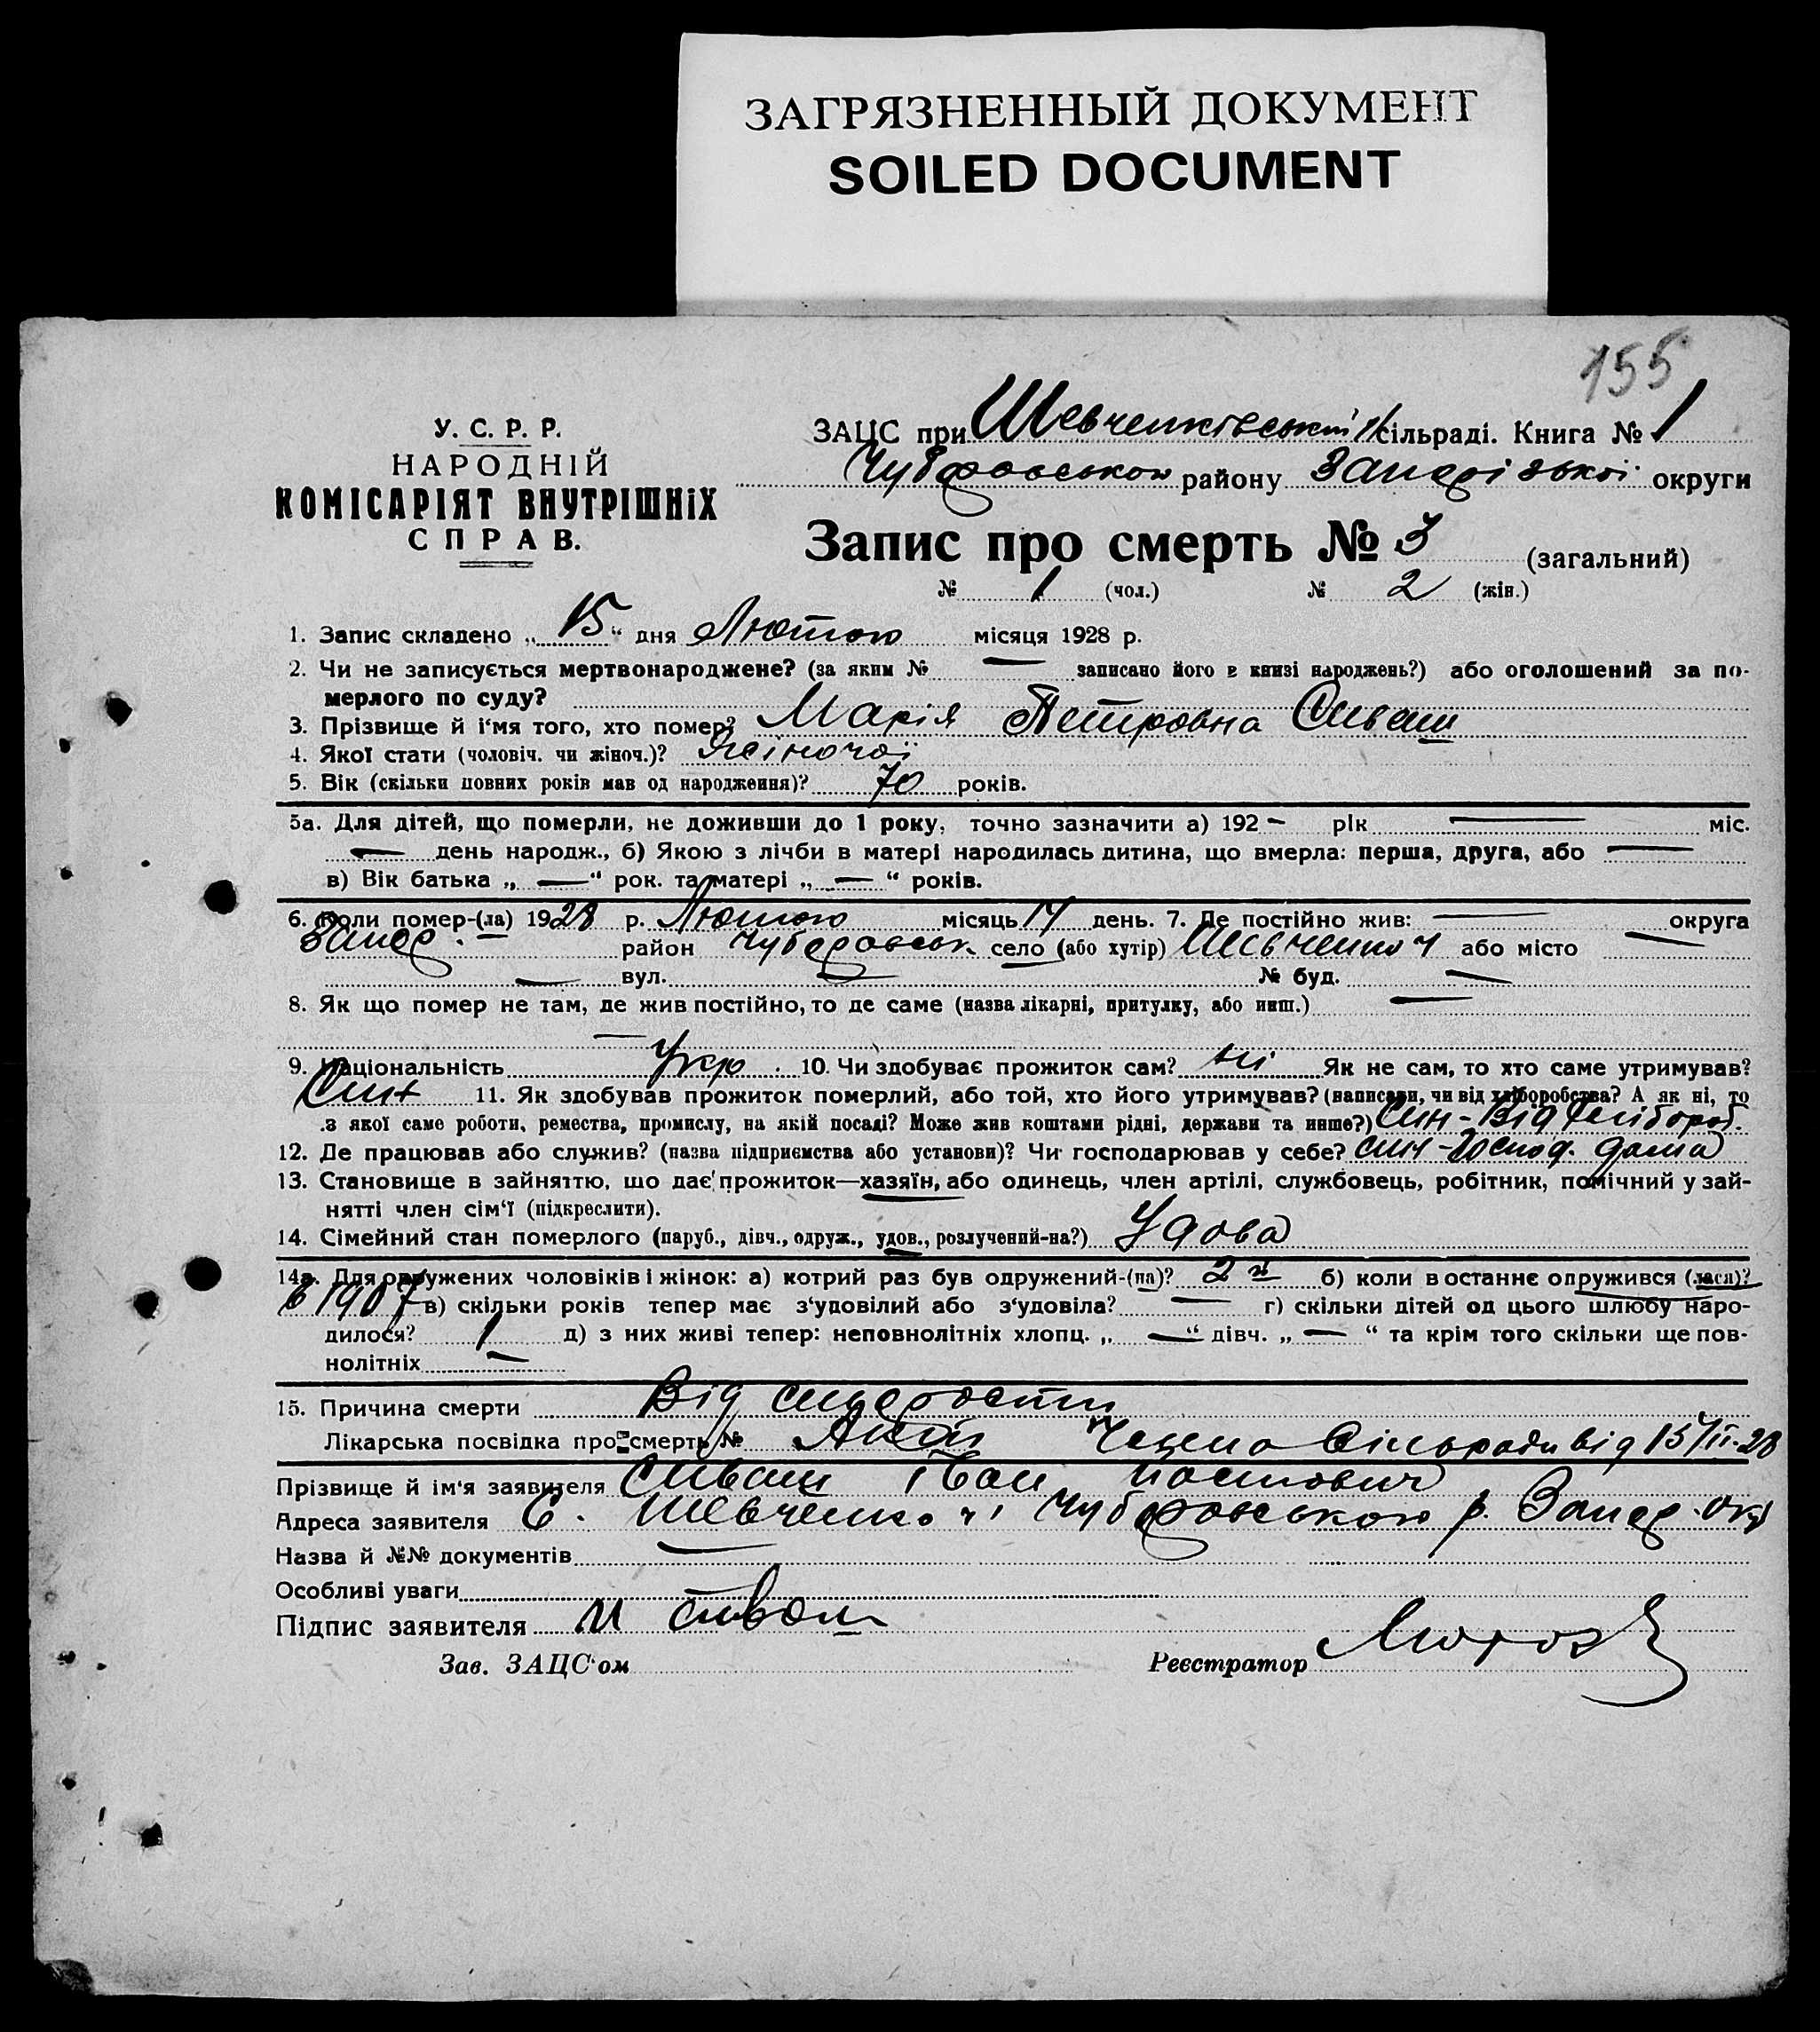 ЗАГРЯЗНЕННЫЙ ДОКУМЕНТ
SOILED DOCUMENT
155
У. С. Р. Р.
НАРОДНІЙ
КОМІСАРІЯТ ВНУТРІШНІХ
СПРАВ.
ЗАЦС при Шевченківській сільраді. Книга № 1
Чубаровського району Запорізької округи
Запис про смерть № 3 (загальний)
№ 1 (чол.) № 2 (жін.)
1. Запис складено „ 15 “ дня Лютого місяця 1928 р.
2. Чи не записується мертвонароджене? (за яким № — записано його в книзі народжень?) або оголошений за по-
мерлого по суду?
3. Прізвище й і‘мя того, хто помер? Марія Петровна Сиваш
4. Якої стати (чоловіч. чи жіноч.)? жіночої
5. Вік (скільки повних років мав од народження)? 70 років.
5а. Для дітей, що померли, не доживши до 1 року, точно зазначити а) 192 — рік — міс.
— день народж., б) Якою з лічби в матері народилась дитина, що вмерла: перша, друга, або —
в) Вік батька „ — “ рок. та матері „ — “ років.
6. Коли помер-(ла) 1928 р. Лютого місяць 14 день. 7. Де постійно жив: — округа
Запор. — район Чубаровськ село (або хутір) Шевченко або місто —
— вул. — № буд. —
8. Як що помер не там, де жив постійно, то де саме (назва лікарні, притулку, або инш.) —
—
9. Національність Укр. 10. Чи здобуває прожиток сам? ні Як не сам, то хто саме утримував?
Син 11. Як здобував прожиток померлий, або той, хто його утримував? (написати, чи від хліборобства? А як ні, то
з якої саме роботи, ремества, промислу, на якій посаді? Може жив коштами рідні, держави та инше?) Син - Від хлібороб.
12. Де працював або служив? (назва підприємства або установи)? Чи господарював у себе? син - Господ. дома
13. Становище в зайняттю, що дає прожиток—хазяїн, або одинець, член артілі, службовець, робітник, помічний у зай-
нятті член сім‘ї (підкреслити).
14. Сімейний стан померлого (паруб., дівч., одруж., удов., розлучений-на?) Удова
14а. Для одружених чоловіків і жінок: а) котрий раз був одружений-(на)? 2й б) коли в останнє одружився (лася)?
в 1907 в) скільки років тепер має з‘удовілий або з‘удовіла? — г) скільки дітей од цього шлюбу наро-
дилося? 1 д) з них живі тепер: неповнолітніх хлопц. „ — “ дівч. „ — “ та крім того скільки ще пов-
нолітніх —
15. Причина смерти Від старости
Лікарська посвідка про смерть № Сільради від 15/II-28
Прізвище й ім‘я заявителя Сиваш Іван
Адреса заявителя С. Шевченко Чубаровського р. Запор. окр
Назва й №№ документів —
Особливі уваги
Підпис заявителя И Сиваш
Зав. ЗАЦС‘ом Реєстратор